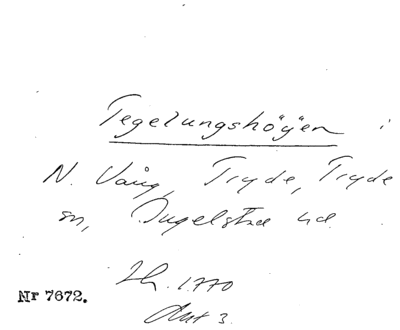 Tegelungshöÿen i
N. Vång, Tryde, Tryde
sn, Ingelstad hd
Lh. 1770
Akt 3.
Nr 7672.